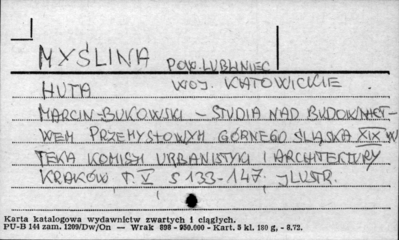 MYŚLINA POW. LUBLINIEC
HUTA WOJ. KATOWICKIE
MARCIN BUKOWSKI - STUDIA NAD BUDOWNICT-
WEM PRZEMYSŁOWYM GÓRNEGO ŚLĄSKA XIX W
TEKA KOMISJI URBANISTYKI I ARCHITEKTURY
KRAKÓW T. V S 133-147. JLUSTR.
Karta katalogowa wydawnictw zwartych i ciągłych.
PU-B 144 zam. 1209/Dw/On — Wrak 898 - 950.000 - Kart. 5 kl. 180 g, - 8.72.